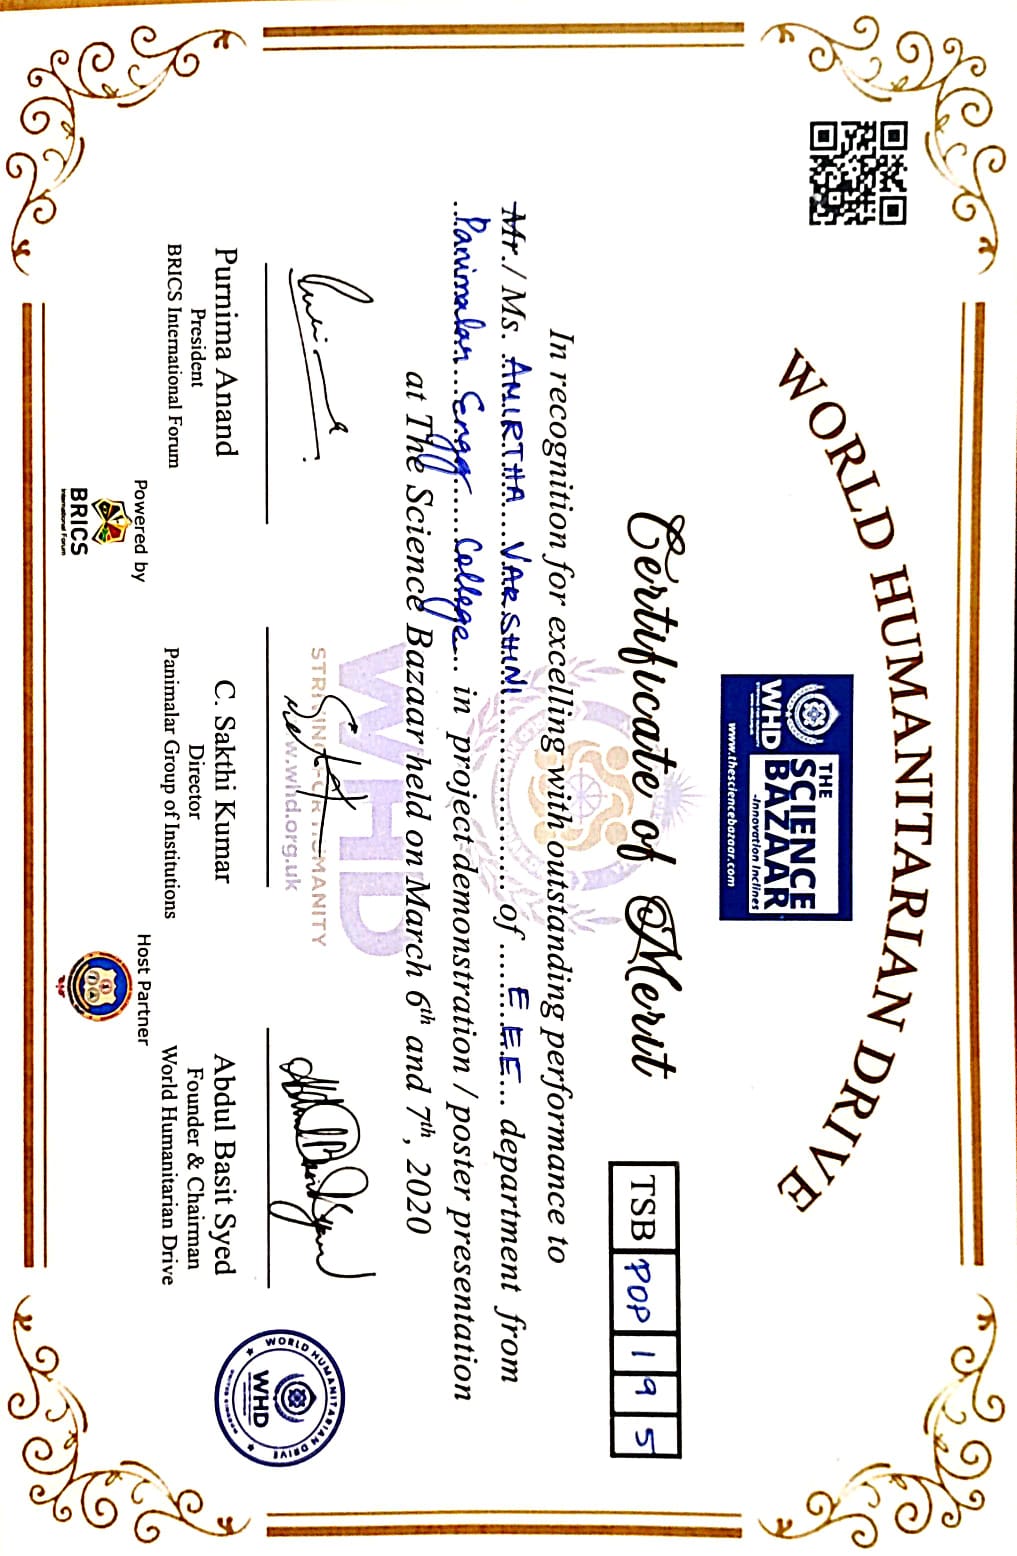 WORLD HUMANITARIAN DRIVE
WHD
www.thesciencebazaar.com
THE
SCIENCE
BAZAAR
-Innovation Inclines
Certificate of Merit
TSB POP 1 9 5
In recognition for excelling with outstanding performance to
Mr./ Ms. AMIRTHA VARSHINI of EEE department from
Panimalar Engg College in project demonstration / poster presentation
at The Science Bazaar held on March 6th and 7th, 2020
WHD
STRIVING FOR HUMANITY
www.whd.org.uk
Purnima Anand
President
BRICS International Forum
C. Sakthi Kumar
Director
Panimalar Group of Institutions
Abdul Basit Syed
Founder & Chairman
World Humanitarian Drive
Powered by
BRICS
International Forum
Host Partner
WORLD HUMANITARIAN DRIVE
WHD